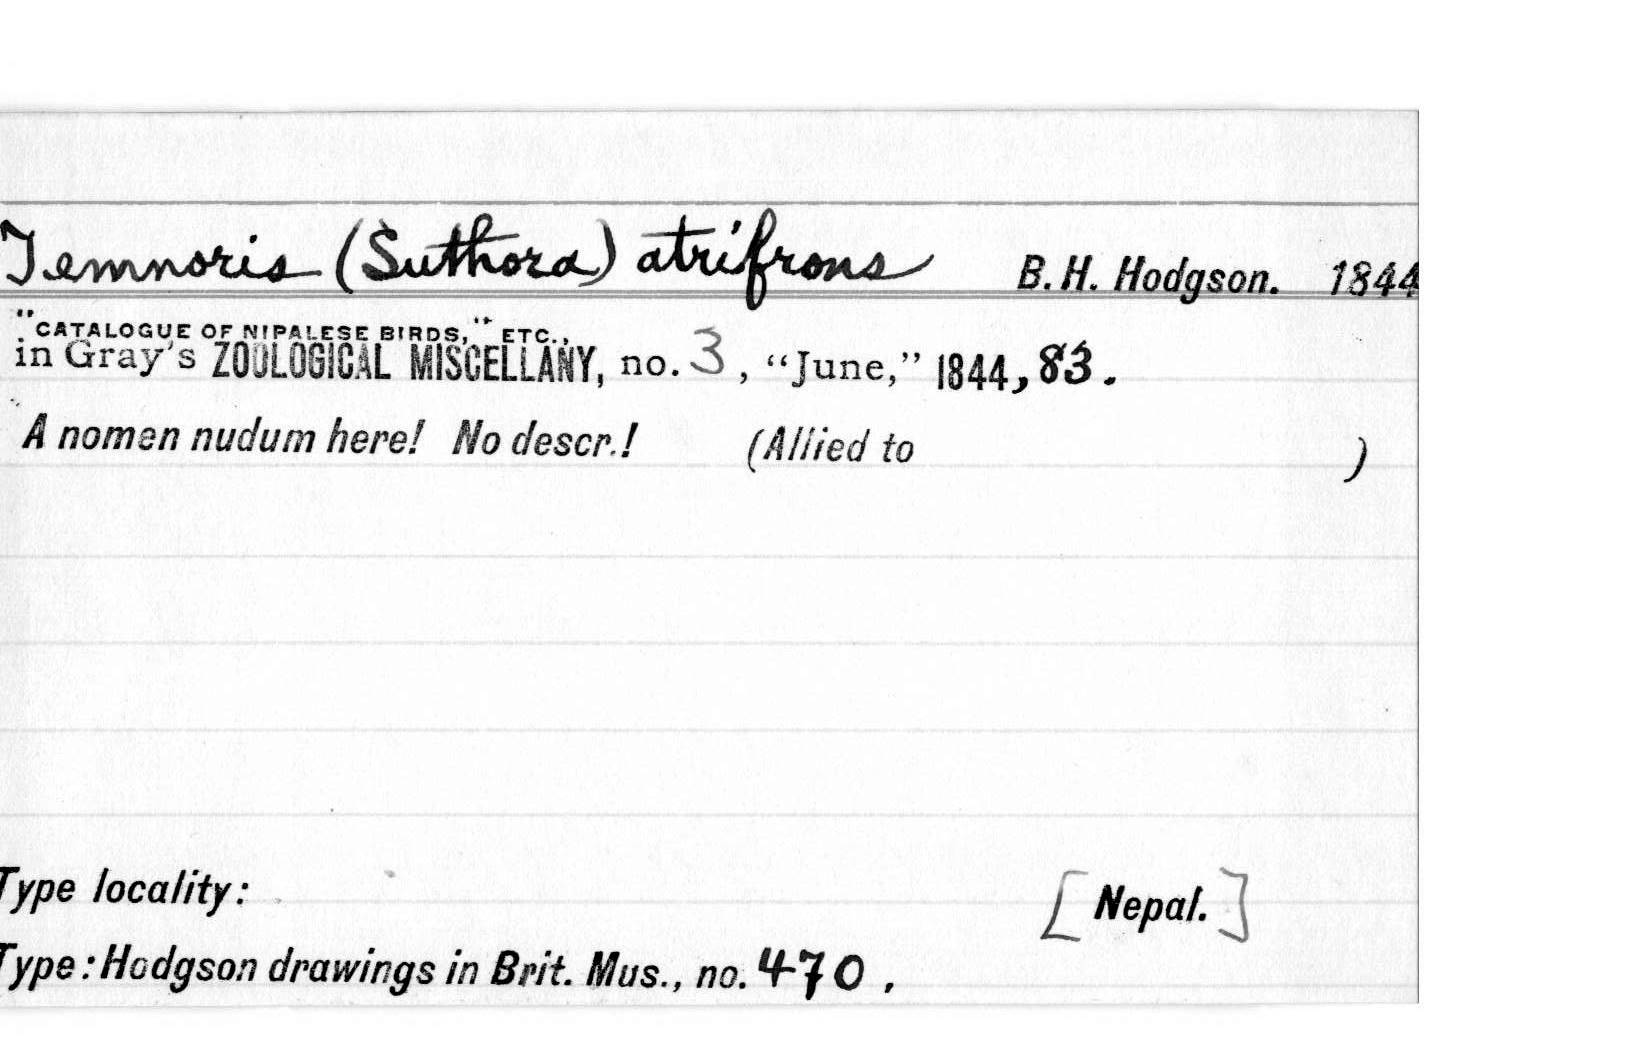 Temnoris (Suthora) atrifrons B. H. Hodgson. 1844
"CATALOGUE OF NIPALESE BIRDS," ETC.,
in Gray's ZOOLOGICAL MISCELLANY, no. 3, "June," 1844, 83.
A nomen nudum here! No descr.! (Allied to )
Type locality: [Nepal.]
Type: Hodgson drawings in Brit. Mus., no. 470.